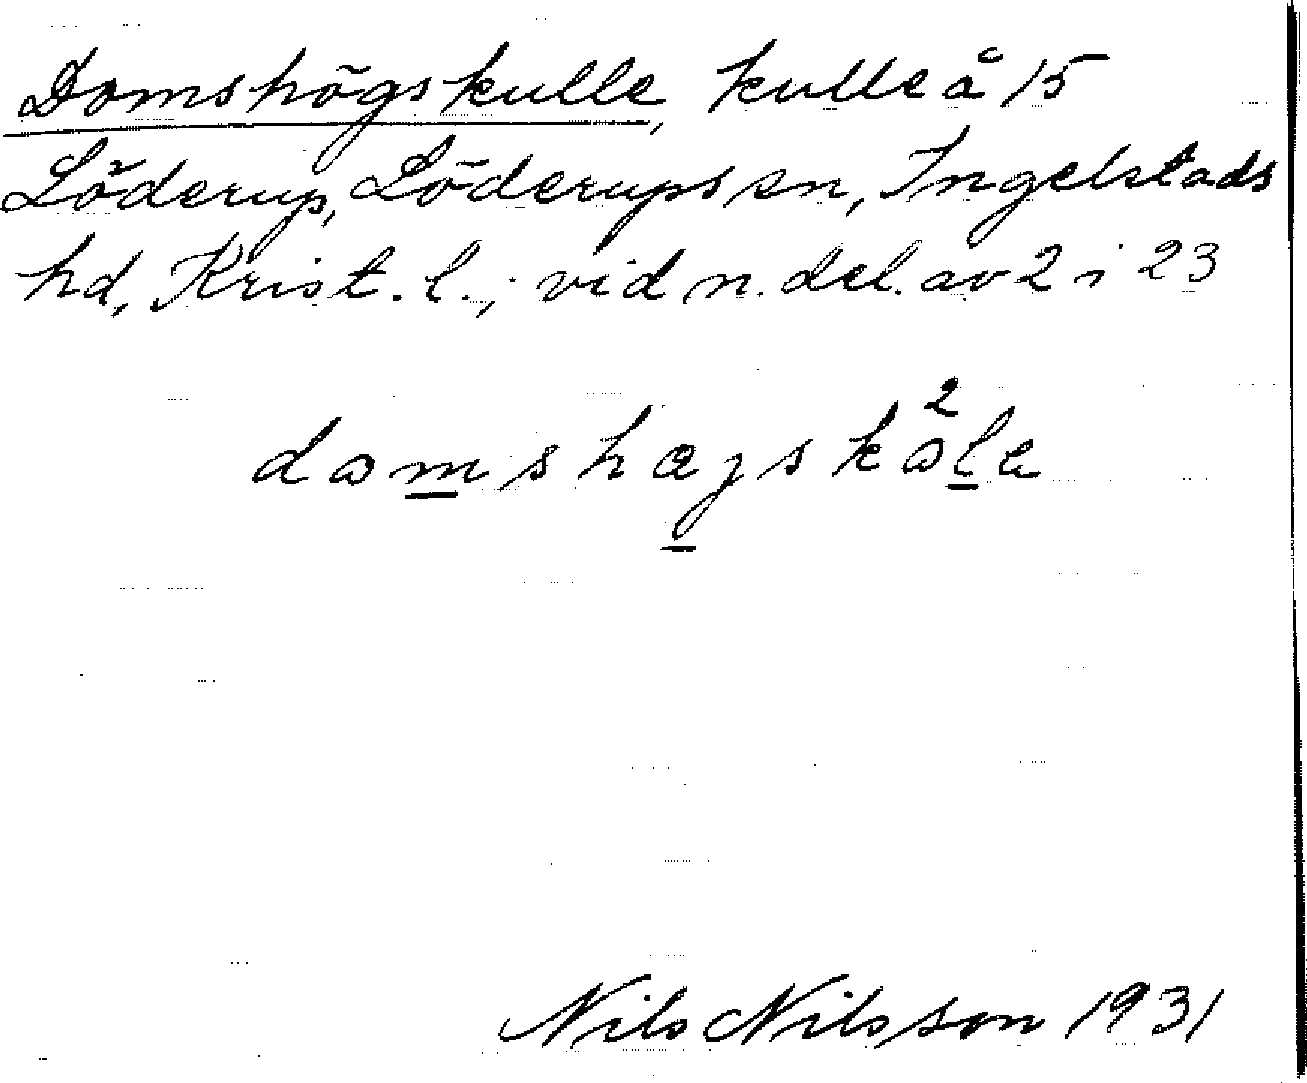 Domshögskulle, kulle å 15
Löderup, Löderups sn, Ingelstads
hd, Krist. l.; vid n. del. av 2 i 23
2
domshøgskole
Nils Nilsson 1931